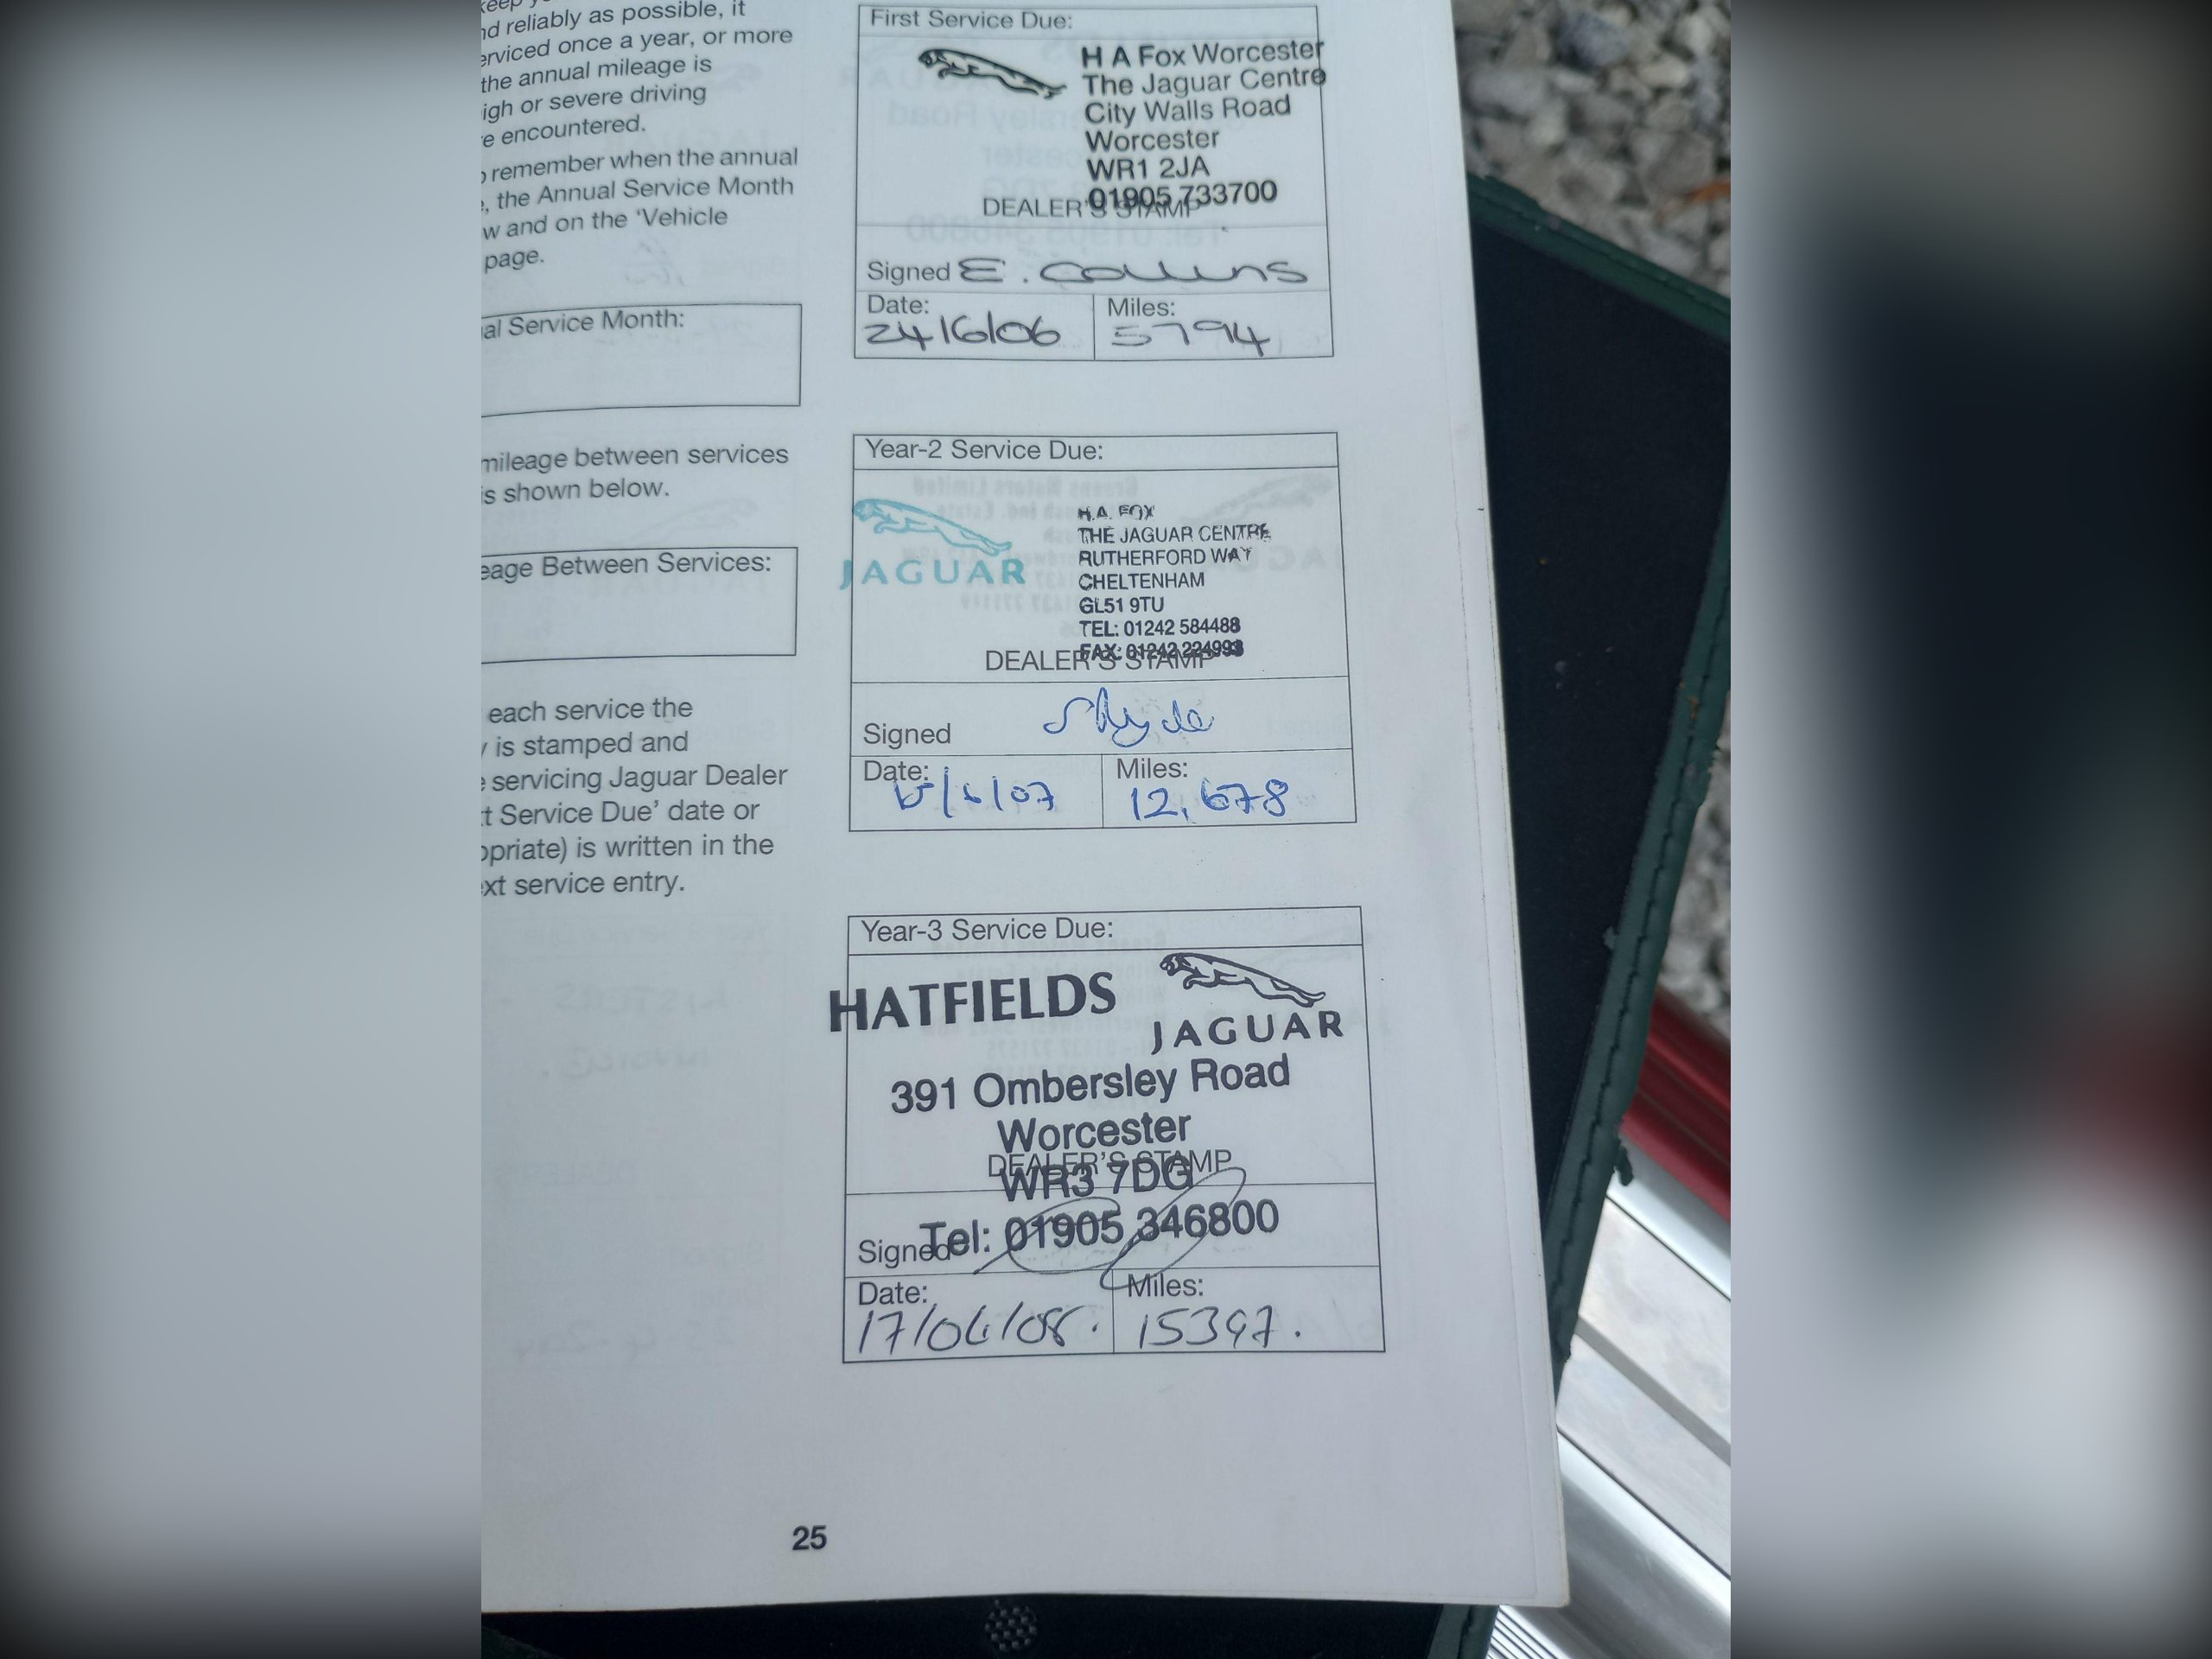 nd reliably as possible, it
erviced once a year, or more
the annual mileage is
igh or severe driving
e encountered.
remember when the annual
, the Annual Service Month
w and on the ‘Vehicle
page.
al Service Month:
mileage between services
s shown below.
eage Between Services:
each service the
is stamped and
servicing Jaguar Dealer
t Service Due’ date or
opriate) is written in the
ext service entry.
First Service Due:
H A Fox Worcester
The Jaguar Centre
City Walls Road
Worcester
WR1 2JA
01905 733700
DEALER'S STAMP
Signed E. Collins
Date: Miles:
24/6/06 5794
Year-2 Service Due:
JAGUAR
H.A. FOX
THE JAGUAR CENTRE
RUTHERFORD WAY
CHELTENHAM
GL51 9TU
TEL: 01242 584488
FAX: 01242 224993
DEALER'S STAMP
Signed
Date: Miles:
12,678
Year-3 Service Due:
HATFIELDS
JAGUAR
391 Ombersley Road
Worcester
DEALER'S STAMP
WR3 7DG
Tel: 01905 346800
Signed
Date: Miles:
15397.
25